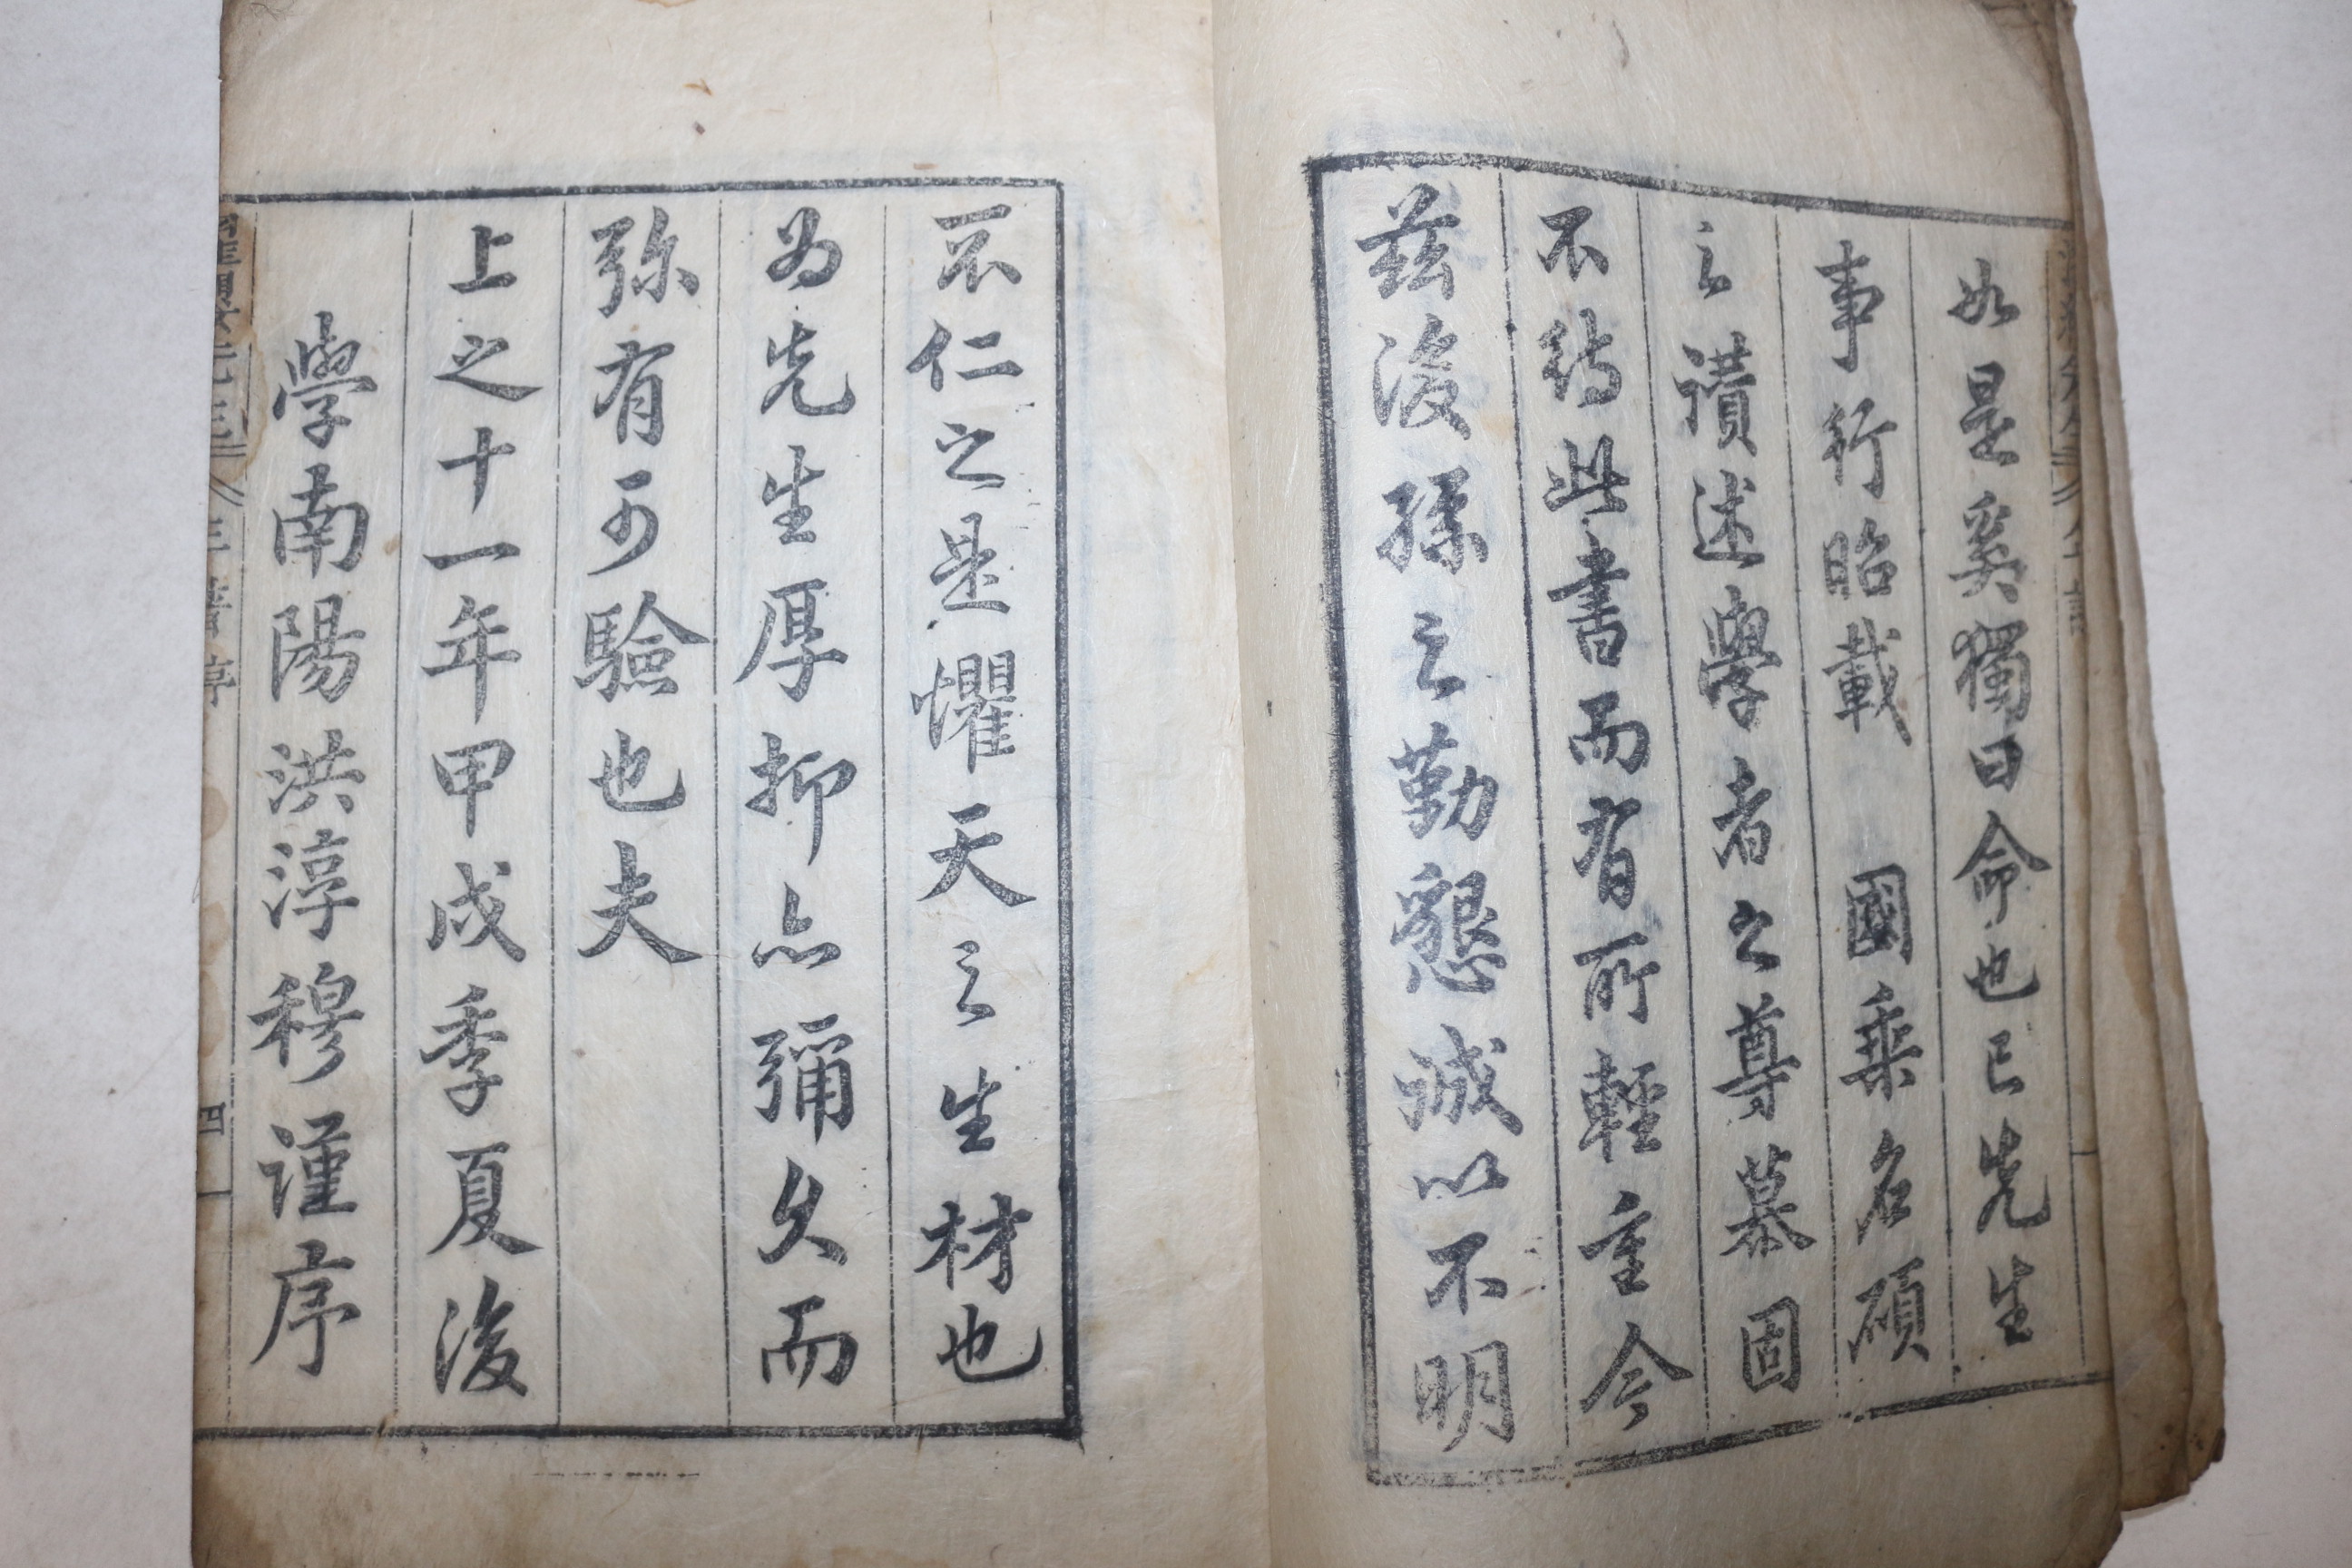 如是奚獨曰命也已先生
事行昭載 國乘名碩
之讚述學者之尊慕固
不待此書而有所輕重今
茲後孫之勤懇誠以不明
不仁之是懼天之生材也
為先生厚抑亦彌久而
弥有可驗也夫
上之十一年甲戌季夏後
學南陽洪淳穆謹序
四